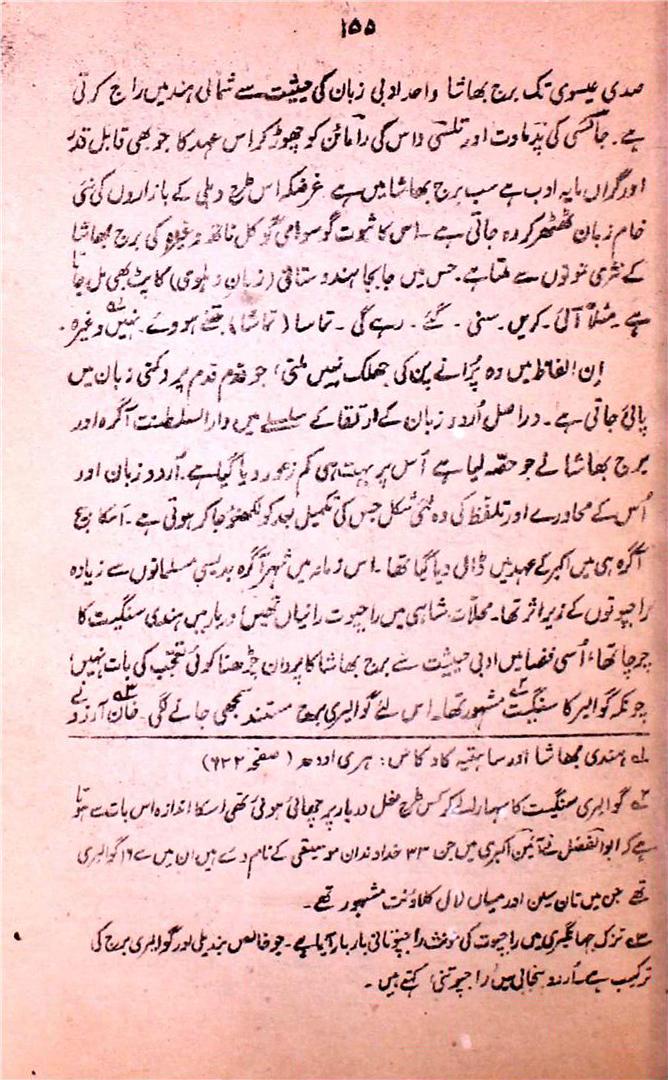 ۱۵۵
صدی عیسوی تک برج بھاشا واحد ادبی زبان کی حیثیت سے شمالی ہند میں راج کرتی
ہے۔ جائسی کی پدماوت اور تلسی داس کی رامائن کو چھوڑ کر اس عہد کا جو بھی قابل قدر
اور گراں مایہ ادب ہے سب برج بھاشا میں ہے غرضکہ اس طرح دہلی کے بازاروں کی نئی
خام زبان ٹھٹھر کر رہ جاتی ہے۔ اس کا ثبوت گوسوامی گوکل ناتھ وغیرہ کی برج بھاشا
کے نثری نمونوں سے ملتا ہے۔ جس میں جابجا ہندوستانی (زبان دہلوی) کا پٹ بھی مل جاتا
ہے۔ مثلاً آئی۔ کریں۔ سنی۔ گئے۔ رہے گی۔ تماسا (تماشا) جتنے ہووے۔ نہیں وغیرہ۔
اِن الفاظ میں وہ پُرانے پن کی جھلک نہیں ملتی، جو قدم قدم پر دکنی زبان میں
پائی جاتی ہے۔ دراصل اُردو زبان کے ارتقا کے سلسلے میں دارالسلطنت آگرہ اور
برج بھاشا نے جو حصّہ لیا ہے اُس پر بہت ہی کم زور دیا گیا ہے۔ اُردو زبان اور
اُس کے محاورے اور تلفظ کی وہ نئی شکل جس کی تکمیل بعد کو لکھنؤ جا کر ہوتی ہے۔ اسکا بیج
آگرہ ہی میں اکبر کے عہد میں ڈال دیا گیا تھا۔ اس زمانہ میں شہر آگرہ بدیسی مسلمانوں سے زیادہ
راجپوتوں کے زیر اثر تھا۔ محلّات شاہی میں راجپوت رانیاں تھیں، دربار میں ہندی سنگیت کا
چرچا تھا، اُسی فضا میں ادبی حیثیت سے برج بھاشا کا پروان چڑھنا کوئی تعجّب کی بات نہیں،
چونکہ گوالیر کا سنگیت۲ مشہور تھا۔ اس لئے گوالیری برج مستند سمجھی جانے لگی۔۳ خان آرزو نے
۱ ہندی بھاشا اور ساہتیہ کا وکاس: ہری اودھ (صفحہ ۶۲۲)
۲ گوالیری سنگیت کا سہارا لے کر کس طرح مغل دربار پر چھائی ہوئی تھی اسکا اندازہ اس بات سے ہوتا
ہے کہ ابوالفضل نے آئین اکبری میں جن ۳۳ خداوندان موسیقی کے نام دئے ہیں ان میں سے ۱۶ گوالیری
تھے جن میں تان سین اور میاں لال کلاونت مشہور تھے۔
۳ تزک جہانگیری میں راجپوت کی مونث راجپوتانی بار بار آیا ہے۔ جو خالص بندیلی اور گوالیری برج کی
ترکیب ہے۔ اُردو پنجابی میں راجپوتنی، کہتے ہیں۔